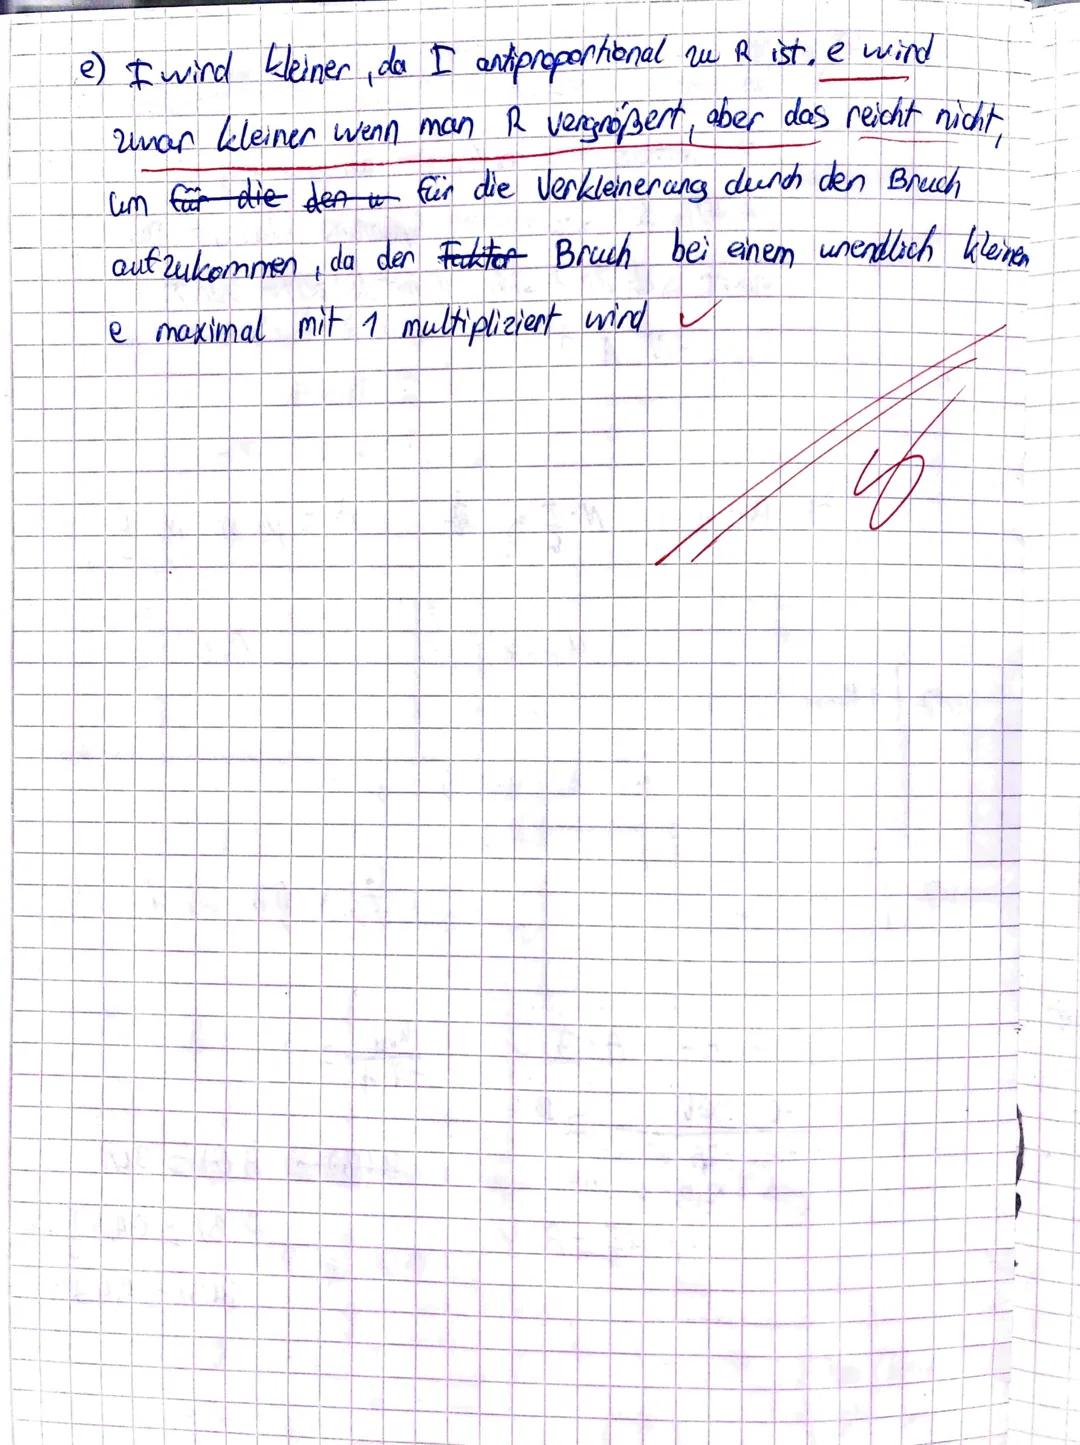 e) I wird kleiner, da I antiproportional zu R ist, e wird
zwar kleiner wenn man R vergrößert, aber das reicht nicht,
um für die den u für die Verkleinerung durch den Bruch
aufzukommen, da der Faktor Bruch bei einem unendlich kleinen
e maximal mit 1 multipliziert wird ✓